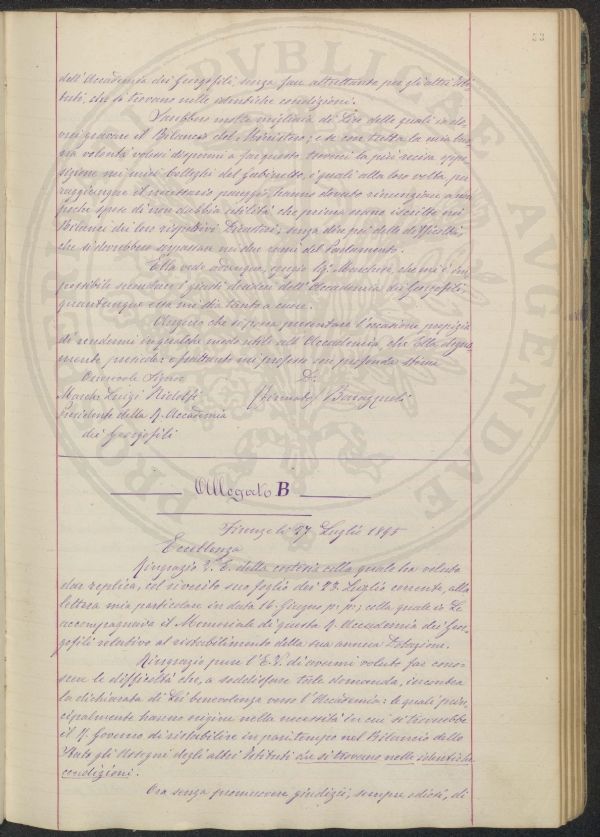 53
dell'Accademia dei Georgofili, senza fare altrettanto per gli altri Isti
tuti, che si trovano nelle identiche condizioni.
Sarebbero molte migliaia di Lire delle quali
gravare il Bilancio del Ministero; e se con tutta la mia buo
na volontà volessi dispormi a far questo, troverei la più recisa oppo
sizione nei miei Colleghi del Gabinetto, i quali alla loro volta per
raggiungere il necessario pareggio, hanno dovuto rinunziare a non
poche spese di non dubbia utilità che prima erano iscritte nei
Bilanci dei loro rispettivi Dicasteri; senza dire poi delle difficoltà
che si dovrebbero sorpassare nei due rami del Parlamento.
Ella vede adunque, egregio Sig. Marchese, che mi è im
possibile secondare i giusti desideri dell'Accademia dei Georgofili
quantunque essa mi stia tanto a cuore.
Auguro che si possa presentare l'occasione propizia
di rendermi in qualche modo utile all'Accademia, che Ella degna
mente presiede: e frattanto mi professo con profonda stima
Onorevole Signor D:
March: Luigi Ridolfi (firmato) Barazzuoli
Presidente della R. Accademia
dei Georgofili
Allegato B
Firenze li 27 Luglio 1895
Eccellenza
Ringrazio V. E. della cortesia colla quale ha voluto
dar replica, col riverito suo foglio dei 23 Luglio corrente, alla
lettera mia particolare in data 16 Giugno p. p; colla quale io Le
accompagnava il Memoriale di questa R. Accademia dei Geor
gofili relativo al ristabilimento della sua annua Dotazione.
Ringrazio pure l'E. V. di avermi voluto far cono
scere le difficoltà che, a soddisfare tale domanda, incontra
la dichiarata di Lei benevolenza verso l'Accademia: le quali prin
cipalmente hanno origine nella necessità in cui si troverebbe
il R. Governo di ristabilire in pari tempo nel Bilancio dello
Stato gli Assegni degli altri Istituti che si trovano nelle identiche
condizioni.
Ora senza promuovere giudizii, sempre odiosi, di